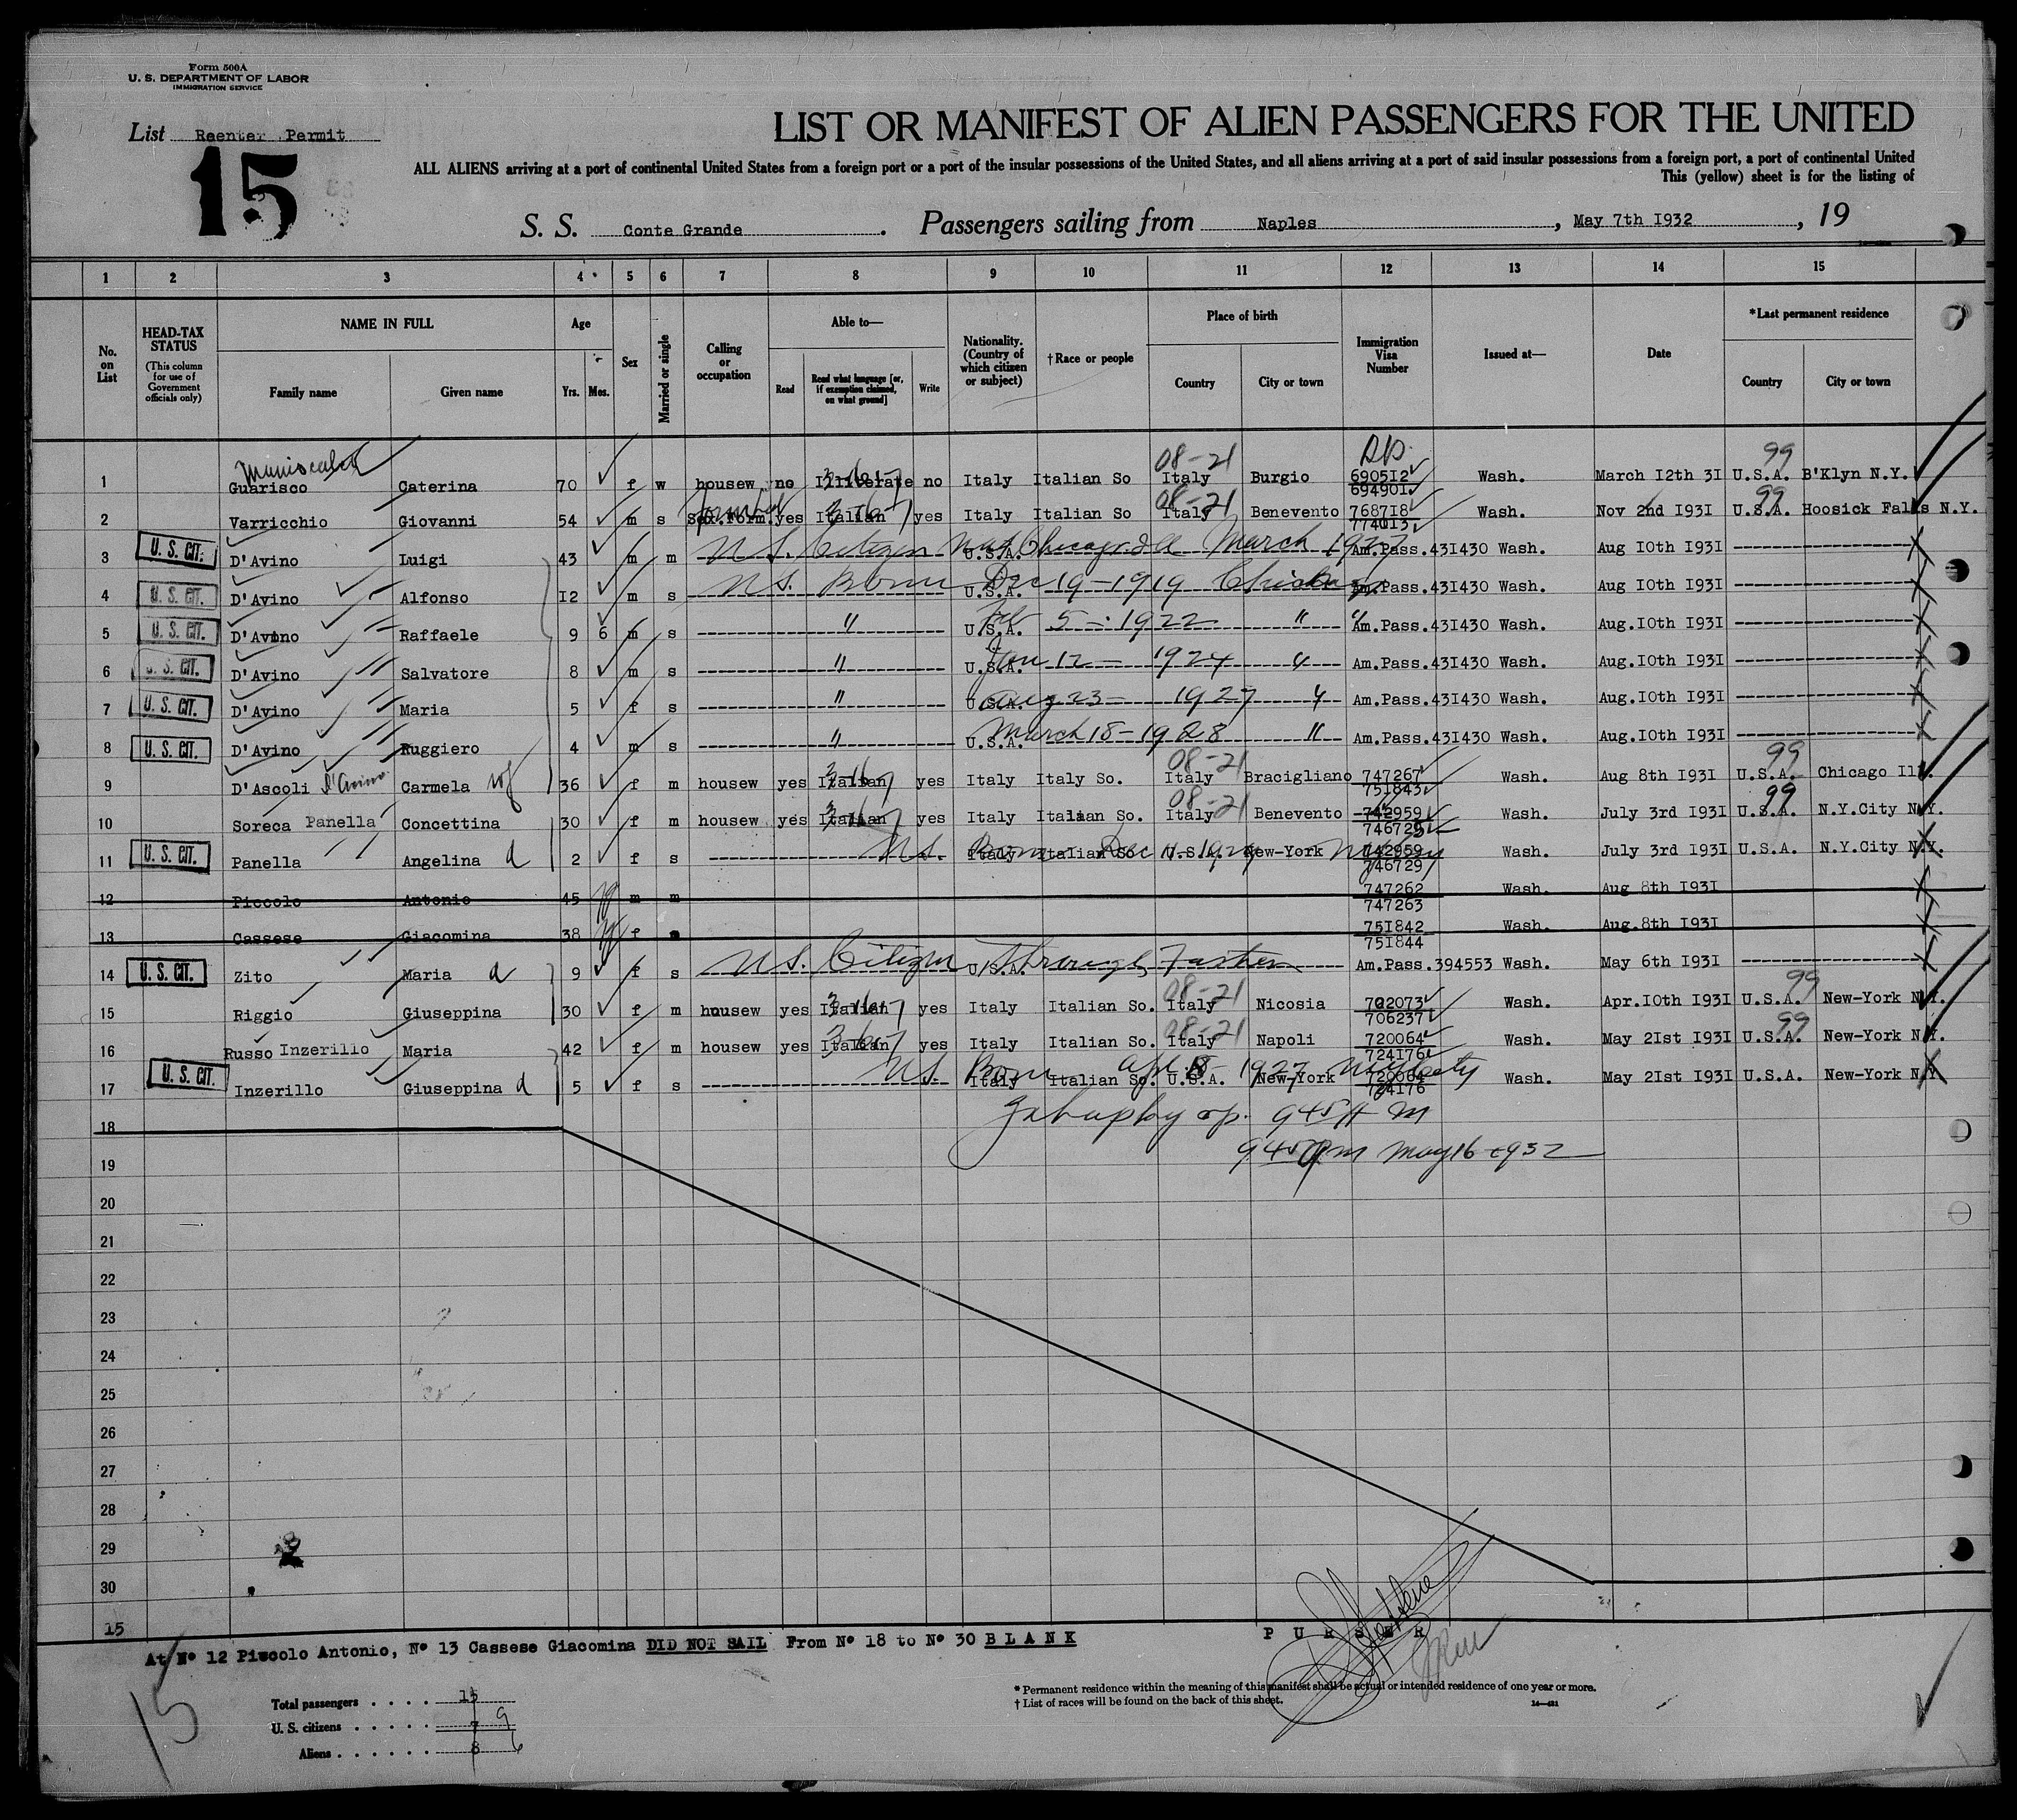 Form 500A
U. S. DEPARTMENT OF LABOR
IMMIGRATION SERVICE
List Reenter Permit
15
LIST OR MANIFEST OF ALIEN PASSENGERS FOR THE UNITED
ALL ALIENS arriving at a port of continental United States from a foreign port or a port of the insular possessions of the United States, and all aliens arriving at a port of said insular possessions from a foreign port, a port of continental United
This (yellow) sheet is for the listing of
S. S. Conte Grande . Passengers sailing from Naples , May 7th I932 , 19
1 2 3 4 5 6 7 8 9 10 11 12 13 14 15
No. on List
HEAD-TAX STATUS
(This column for use of Government officials only)
NAME IN FULL
Family name Given name
Age
Yrs. Mos.
Sex
Married or single
Calling or occupation
Able to—
Read
Read what language [or, if exemption claimed, on what ground]
Write
Nationality. (Country of which citizen or subject)
†Race or people
Place of birth
Country City or town
Immigration Visa Number
Issued at—
Date
*Last permanent residence
Country City or town
Maniscalco 08-21 99
1 Guarisco Caterina 70 f w housew no Illiterate no Italy Italian So Italy Burgio 690512 694901 Wash. March I2th 3I U.S.A. B'Klyn N.Y.
08-21 99
2 Varricchio Giovanni 54 m s yes Italian yes Italy Italian So Italy Benevento 768718 774013 Wash. Nov 2nd I93I U.S.A. Hoosick Falls N.Y.
3 U. S. CIT. D'Avino Luigi 43 m m U.S. Citizen Nat Chicago Ill March 1927 U.S.A. Am.Pass.43I430 Wash. Aug I0th I93I
4 U. S. CIT. D'Avino Alfonso I2 m s U.S. Born Dec 19-1919 Chicago U.S.A. Am.Pass.43I430 Wash. Aug I0th I93I
5 U. S. CIT. D'Avino Raffaele 9 6 m s " U.S.A. 5 - 1922 " " Am.Pass.43I430 Wash. Aug.I0th I93I
6 U. S. CIT. D'Avino Salvatore 8 m s " U.S.A. Jan 12 - 1924 " Am.Pass.43I430 Wash. Aug.I0th I93I
7 U. S. CIT. D'Avino Maria 5 f s " U.S.A. Aug 23 - 1927 " Am.Pass.43I430 Wash. Aug.I0th I93I
8 U. S. CIT. D'Avino Ruggiero 4 m s " U.S.A. March 18-1928 " Am.Pass.43I430 Wash. Aug.I0th I93I
08-21 99
9 D'Ascoli D'Avino Carmela wf 36 f m housew yes Italian yes Italy Italy So. Italy Bracigliano 747267 751843 Wash. Aug 8th I93I U.S.A. Chicago Ill.
08-21 99
10 Soreca Panella Concettina 30 f m housew yes Italian yes Italy Italian So. Italy Benevento 742959 746729 Wash. July 3rd I93I U.S.A. N.Y.City N.Y.
11 U. S. CIT. Panella Angelina d 2 f s U.S. Born Dec 1929 Italy Italian So U.S.A. New-York 742959 746729 Wash. July 3rd I93I U.S.A. N.Y.City N.Y.
12 Piccolo Antonio 45 m m 747262 747263 Wash. Aug 8th I93I
13 Cassese Giacomina 38 f 751842 751844 Wash. Aug.8th I93I
14 U. S. CIT. Zito Maria d 9 f s U.S. Citizen Through Father U.S.A. Am.Pass.394553 Wash. May 6th I93I
08-21 99
15 Riggio Giuseppina 30 f m housew yes Italian yes Italy Italian So. Italy Nicosia 702073 706237 Wash. Apr.I0th I93I U.S.A. New-York N.Y.
08-21 99
16 Russo Inzerillo Maria 42 f m housew yes Italian yes Italy Italian So. Italy Napoli 720064 724176 Wash. May 2Ist I93I U.S.A. New-York N.Y.
17 U. S. CIT. Inzerillo Giuseppina d 5 f s U.S. Born Apl 8 - 1927 Italy Italian So. U.S.A. New-York 720064 724176 Wash. May 2Ist I93I U.S.A. New-York N.Y
18
945 A M
19 945 am May 16 1932
20
21
22
23
24
25
26
27
28
29
30
15
At Nº 12 Piccolo Antonio, Nº 13 Cassese Giacomina DID NOT SAIL From Nº 18 to Nº 30 B L A N K
P U R S E R
Total passengers . . . . 15
U. S. citizens . . . . . 7 9
Aliens . . . . . . 8 6
15
* Permanent residence within the meaning of this manifest shall be actual or intended residence of one year or more.
† List of races will be found on the back of this sheet.